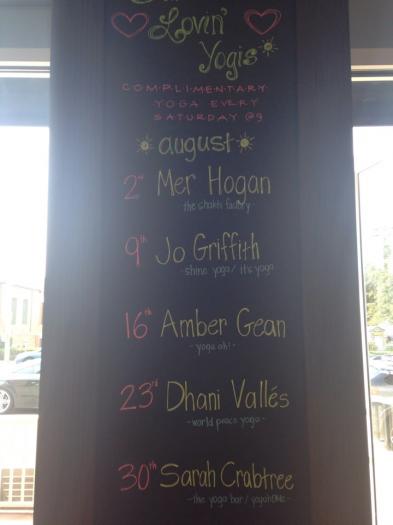 Lovin'
Yogis
COMPLIMENTARY
YOGA EVERY
SATURDAY @9
august
2nd Mer Hogan
the shakti factory
9th Jo Griffith
-shine yoga / it's yoga
16th Amber Gean
-yoga oh!-
23rd Dhani Vallés
-world peace yoga-
30th Sarah Crabtree
-the yoga bar /